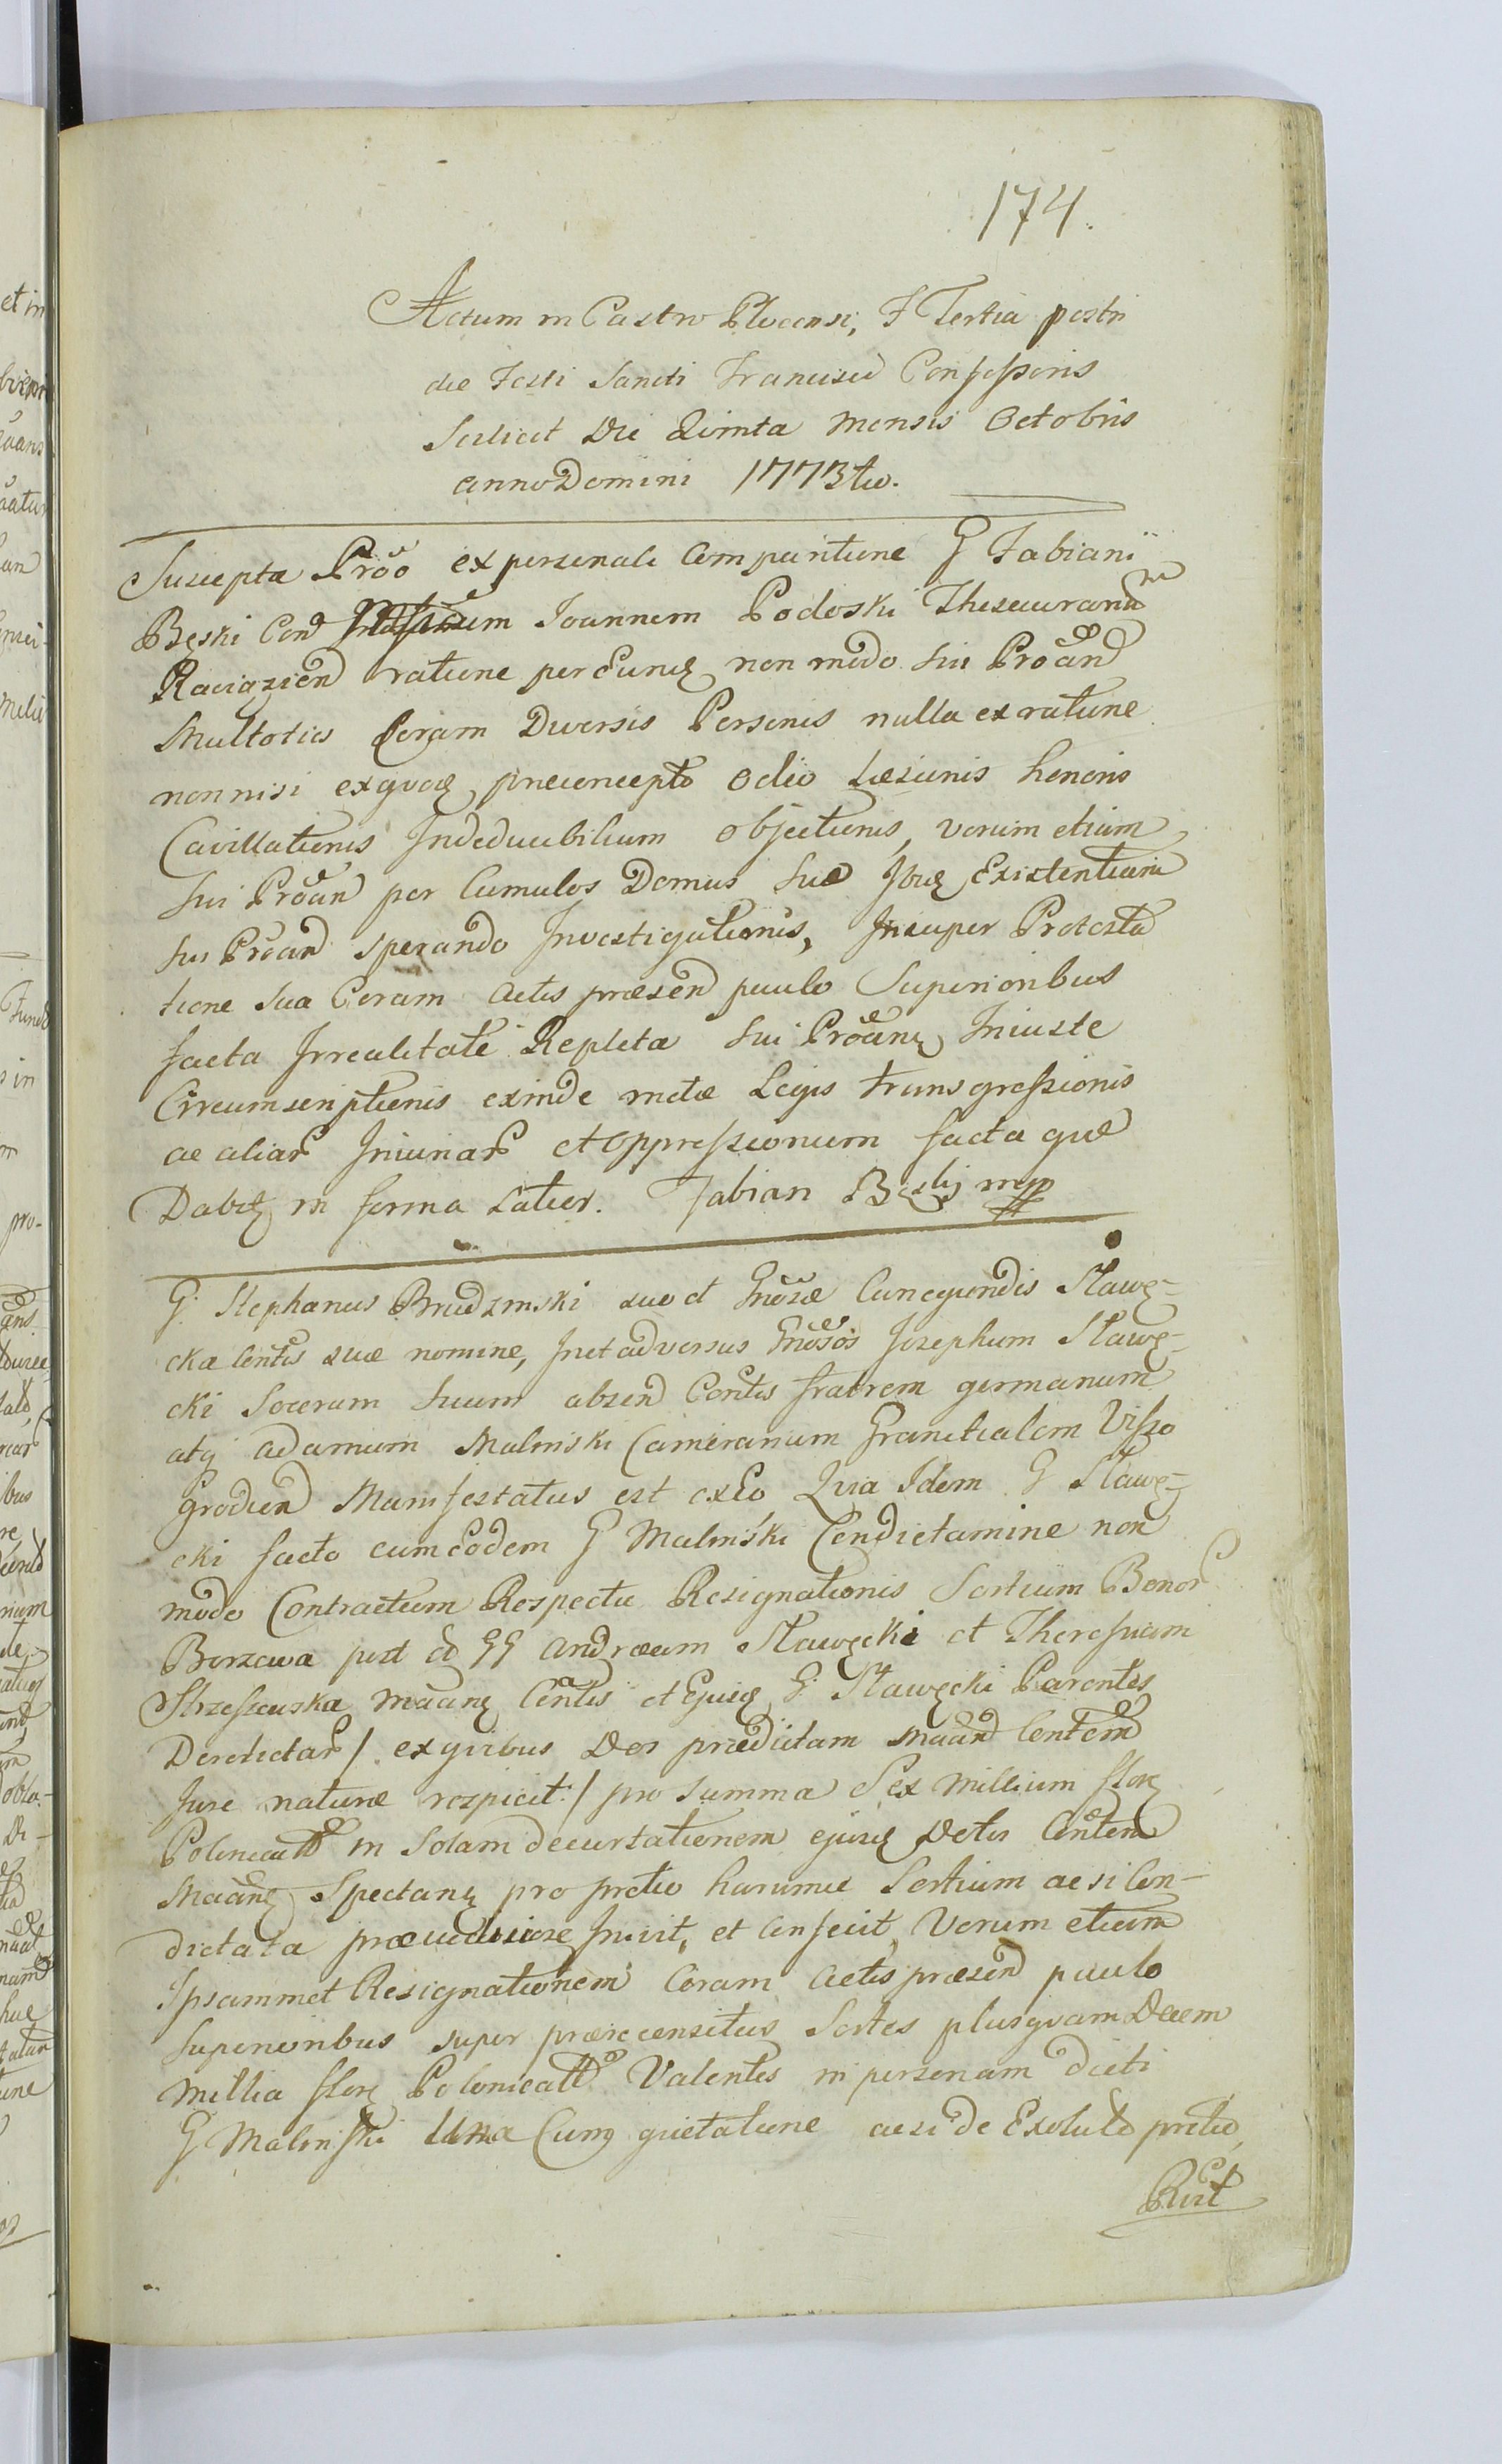 174.
Actum in Castro Plocensi, F Tertia postri
die Festi Sancti Francisci Confessoris
Scilicet Die Quinta Mensis Octobris
anno Domini 1773tio.
Suscepta Prõo ex personali Comparitione G Fabiani
Bęski Con Joannem Podoski Thesaurariu m
Raciązien ratione per Eunq non modo sui Proan
Multoties Coram Diversis Personis nulla ex ratione
nonnisi exquoq praeconcepto Odio Laesionis honoris
Cavillationis Indeducibilium objectionis, verum etiam
sui Proan per Cumulos Domus Suae Ibiq Existentiam
sui Proan sperando Investigationis, Insuper Protesta
tione sua Coram Actis praesen paulo Superioribus
facta Irrealitate Repleta sui Proanq Iniuste
Circumscriptionis exinde metae Legis transgressionis
ac aliar Iniuriar et oppressionum facta quae
Dabitq in forma Latior. Fabian Bęski mp
G. Stephanus Brudzinski suo et Gnosae Cunegundis Sławę-
cka Contis suae nomine, In et adversus Gnosos Josephum Sławę-
cki Socerum suum absen Contis fratrem germanum
atq adamum Malinski Camerarium Granicialem Visso
grodien Manifestatus est ex Eo Quia Idem G Sławę-
cki facto cum eodem G Malinski Condictamine non
modo Contractum Respectu Resignationis Sortium Bonor
Borzewa post GG Andraeam Sławęcki et Theressiam
Strzeszewska Maanq Contis et Ejusq G. Sławęcki Parentes
Derelictar / ex quibus Dos praedictam Maan Contem
Jure naturae respicit: / pro Summa Sex Millium flor
Polonicall in Solam decurtationem ejusq Dotis Contem
Maanq Spectanq pro pretio harumce Sortium ac si Con-
dictata Inivit, et Confecit, Verum etiam
Ipsammet Resignationem Coram Actis praesen paulo
Superioribus super praerecensitas Sortes plusquam Decem
Millia flor Polonicall Valentes in personam dicti
G Malinski Una Cum quietatione ac si de Exoluto pretio,